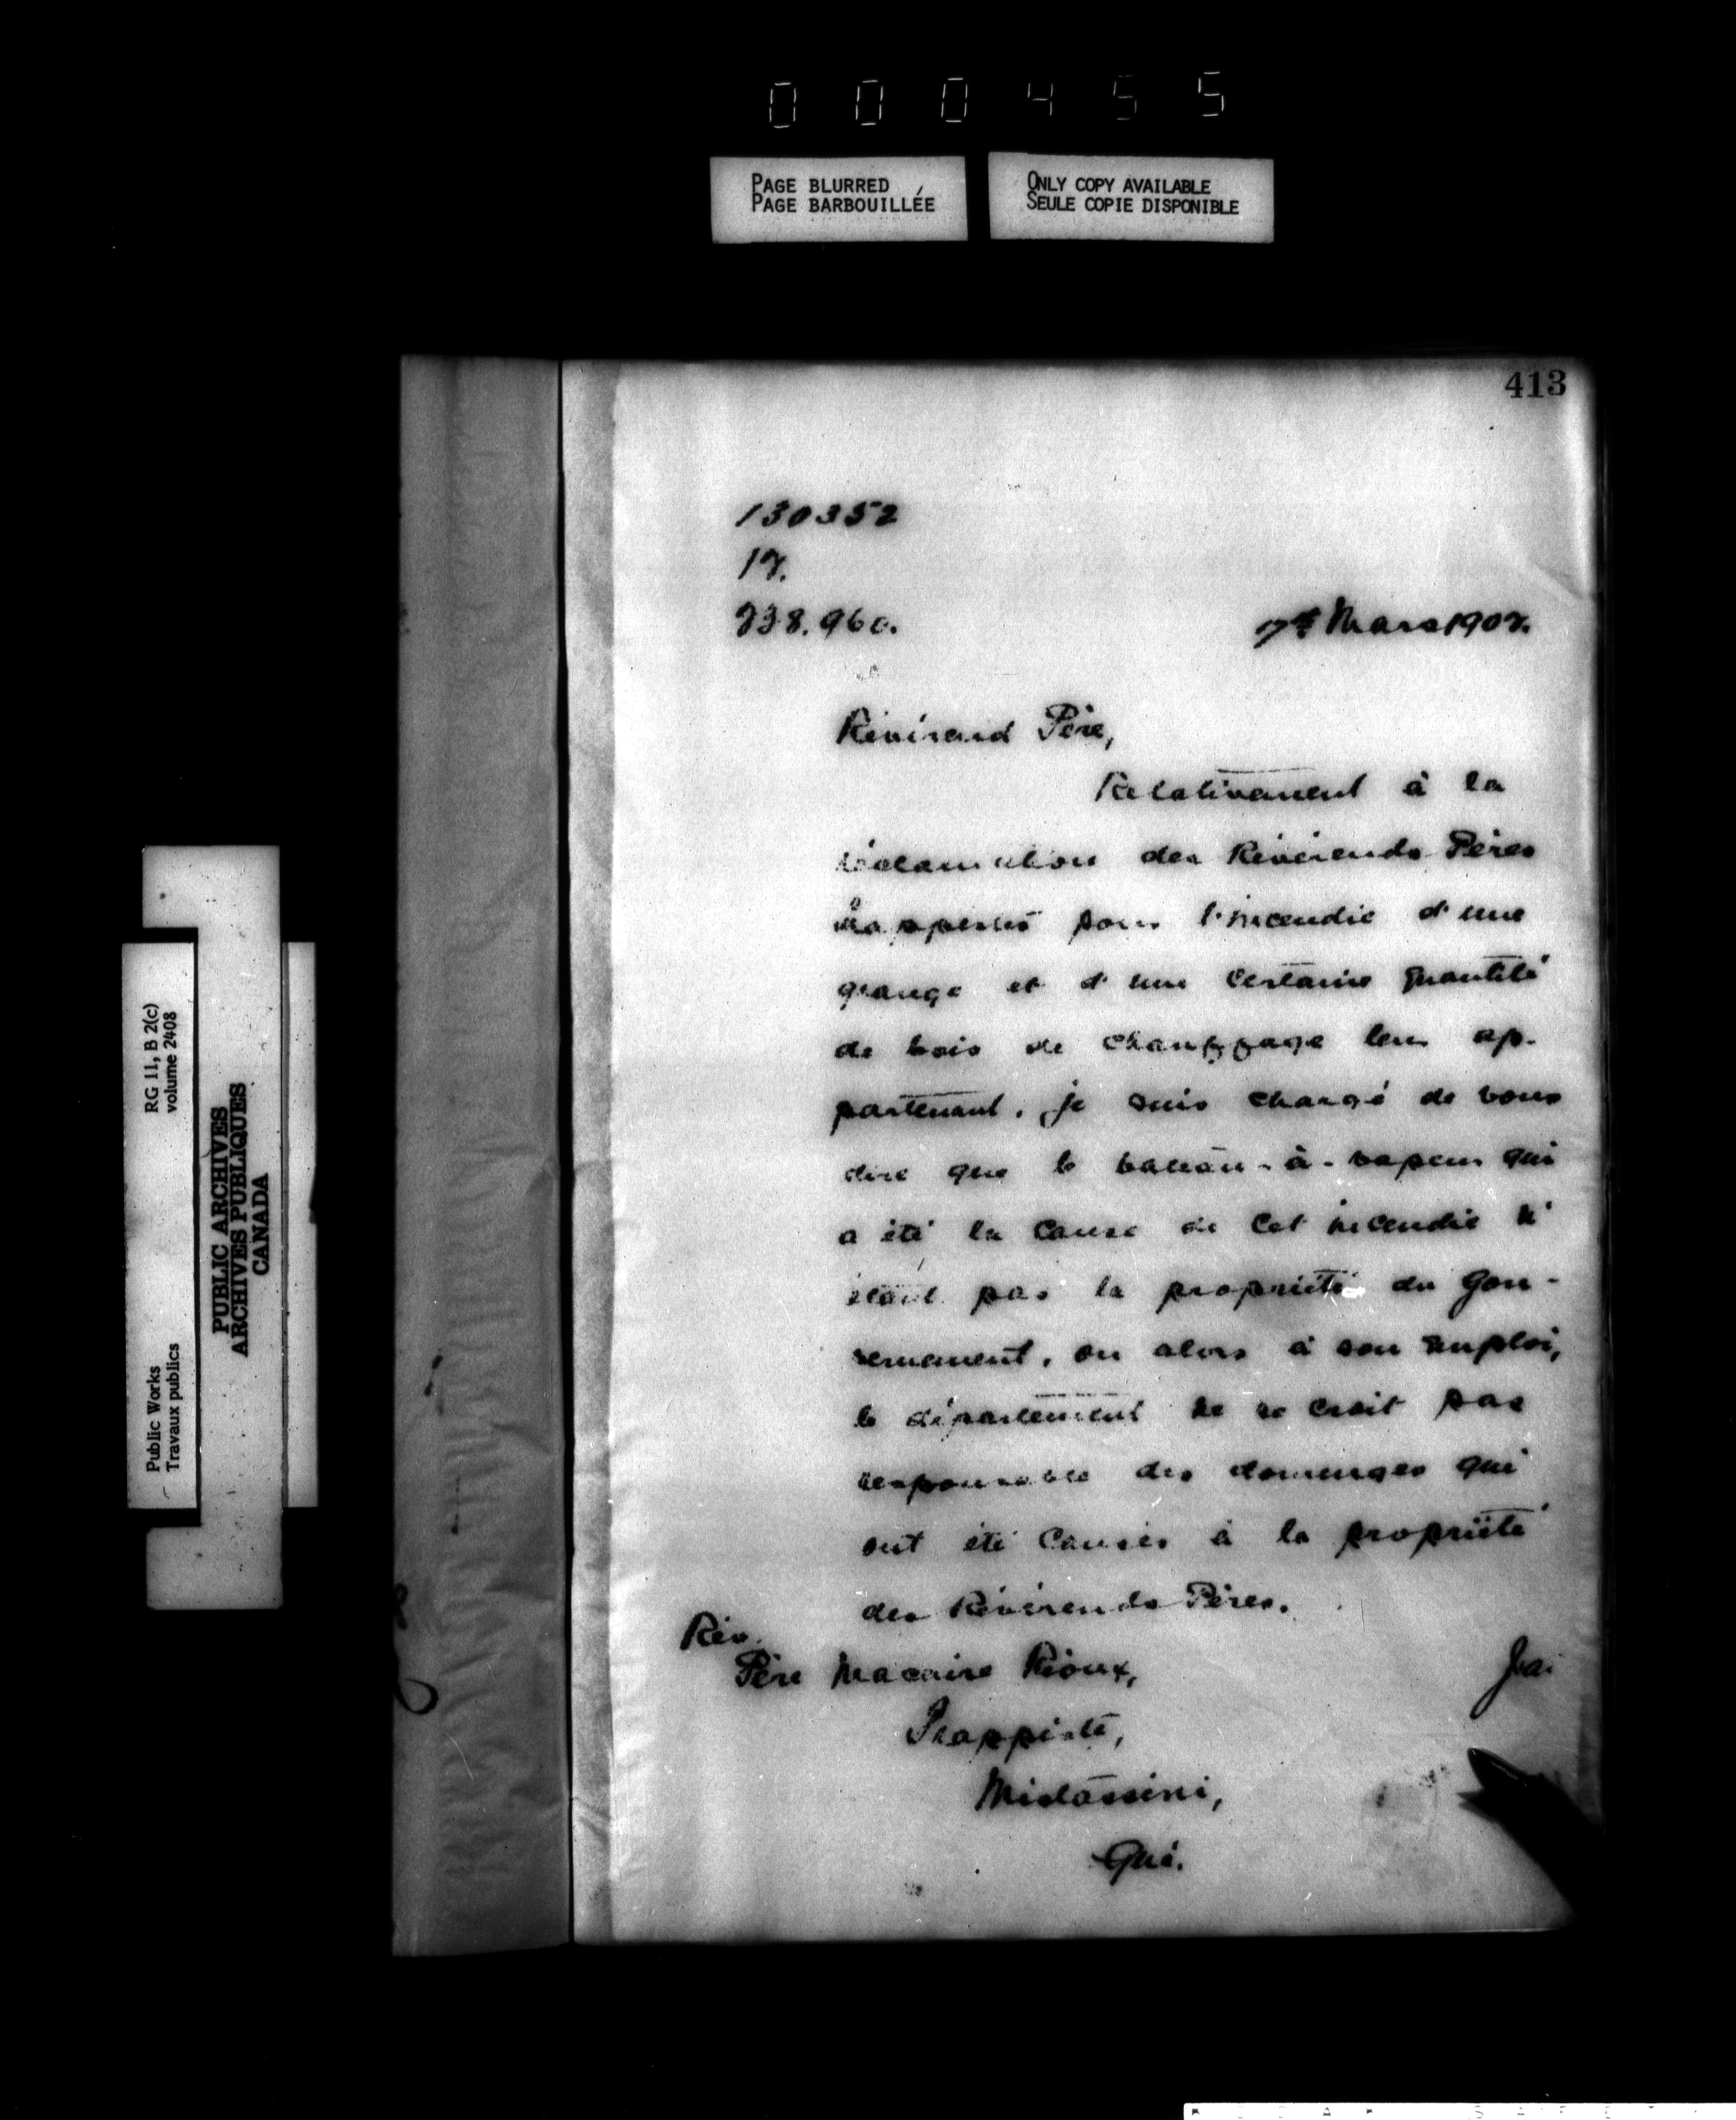 000455
PAGE BLURRED
PAGE BARBOUILLÉE
ONLY COPY AVAILABLE
SEULE COPIE DISPONIBLE
413
130352
17.
238.960.
7 Mars 1907.
Révérend Père,
Relativement à la
réclamation des Révérends Pères
Trappistes pour l'incendie d'une
grange et d'une certaine quantité
de bois de chauffage leur ap-
partenant, je suis chargé de vous
dire que le bateau-à-vapeur qui
a été la cause de cet incendie n'
étant pas la propriété du Gou-
vernement, ou alors à son emploi,
le département ne se croit pas
responsable des dommages qui
ont été causés à la propriété
des Révérends Pères.
Rév.
Père Macaire Rioux,
Trappiste,
Mistassini,
Qué.
J'ai
RG 11, B 2(c)
volume 2408
PUBLIC ARCHIVES
ARCHIVES PUBLIQUES
CANADA
Public Works
Travaux publics